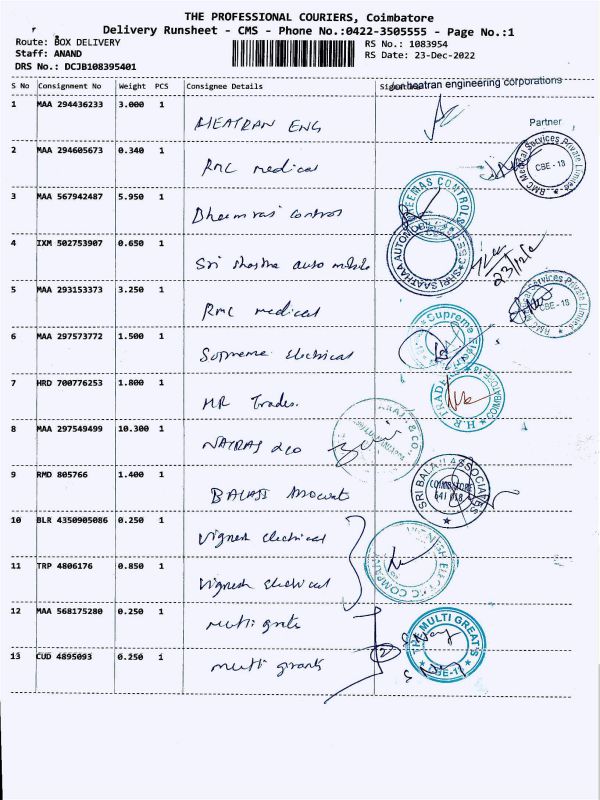 THE PROFESSIONAL COURIERS, Coimbatore
Delivery Runsheet - CMS - Phone No.:0422-3505555 - Page No.:1
Route: BOX DELIVERY RS No.: 1083954
Staff: ANAND RS Date: 23-Dec-2022
DRS No.: DCJB108395401
for heatran engineering corporations
S No Consignment No Weight PCS Consignee Details
Partner
1 MAA 294436233 3.000 1 HEATRAN ENG
2 MAA 294605673 0.340 1 RMC medical
RMC Medical Services Private Limited CBE - 18
3 MAA 567942487 5.950 1 Dheemas control
DHEEMAS CONTROLS
4 IXM 502753907 0.650 1 Sri auto mobile
SHRI SAATHAA AUTOMO
23/12/2
5 MAA 293153373 3.250 1 RMC medical
RMC Medical Services Private Limited CBE - 18
6 MAA 297573772 1.500 1 Supreme Electrical
Supreme
7 HRD 700776253 1.800 1 HR Trades.
H.R. TRADE
8 MAA 297549499 10.300 1 NATRAJ & co
& CO
9 RMD 805766 1.400 1 BALAJI Associats
SRI BALAJI ASSOCIATES COIMBATORE 641 018
10 BLR 4350905086 0.250 1 Vignesh electrical
11 TRP 4806176 0.850 1 Vignesh electrical
VIGNESH ELECTRIC COMPANY
12 MAA 568175280 0.250 1 multi grate
13 CUD 4895093 0.250 1 multi grants
2
THE MULTI GREAT'S CBE-18